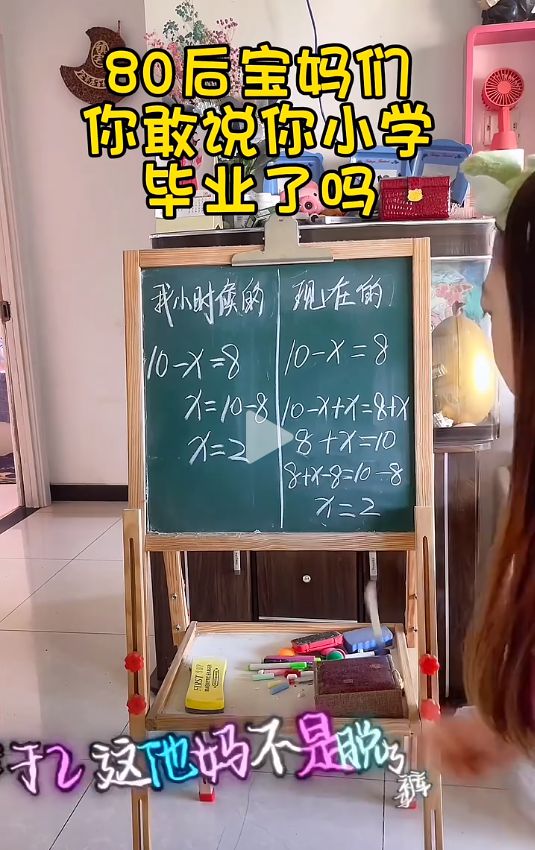 80后宝妈们
你敢说你小学
毕业了吗
我小时候的
10-x=8
x=10-8
x=2
现在的
10-x=8
10-x+x=8+x
8+x=10
8+x-8=10-8
x=2
于2这他妈不是脱了裤